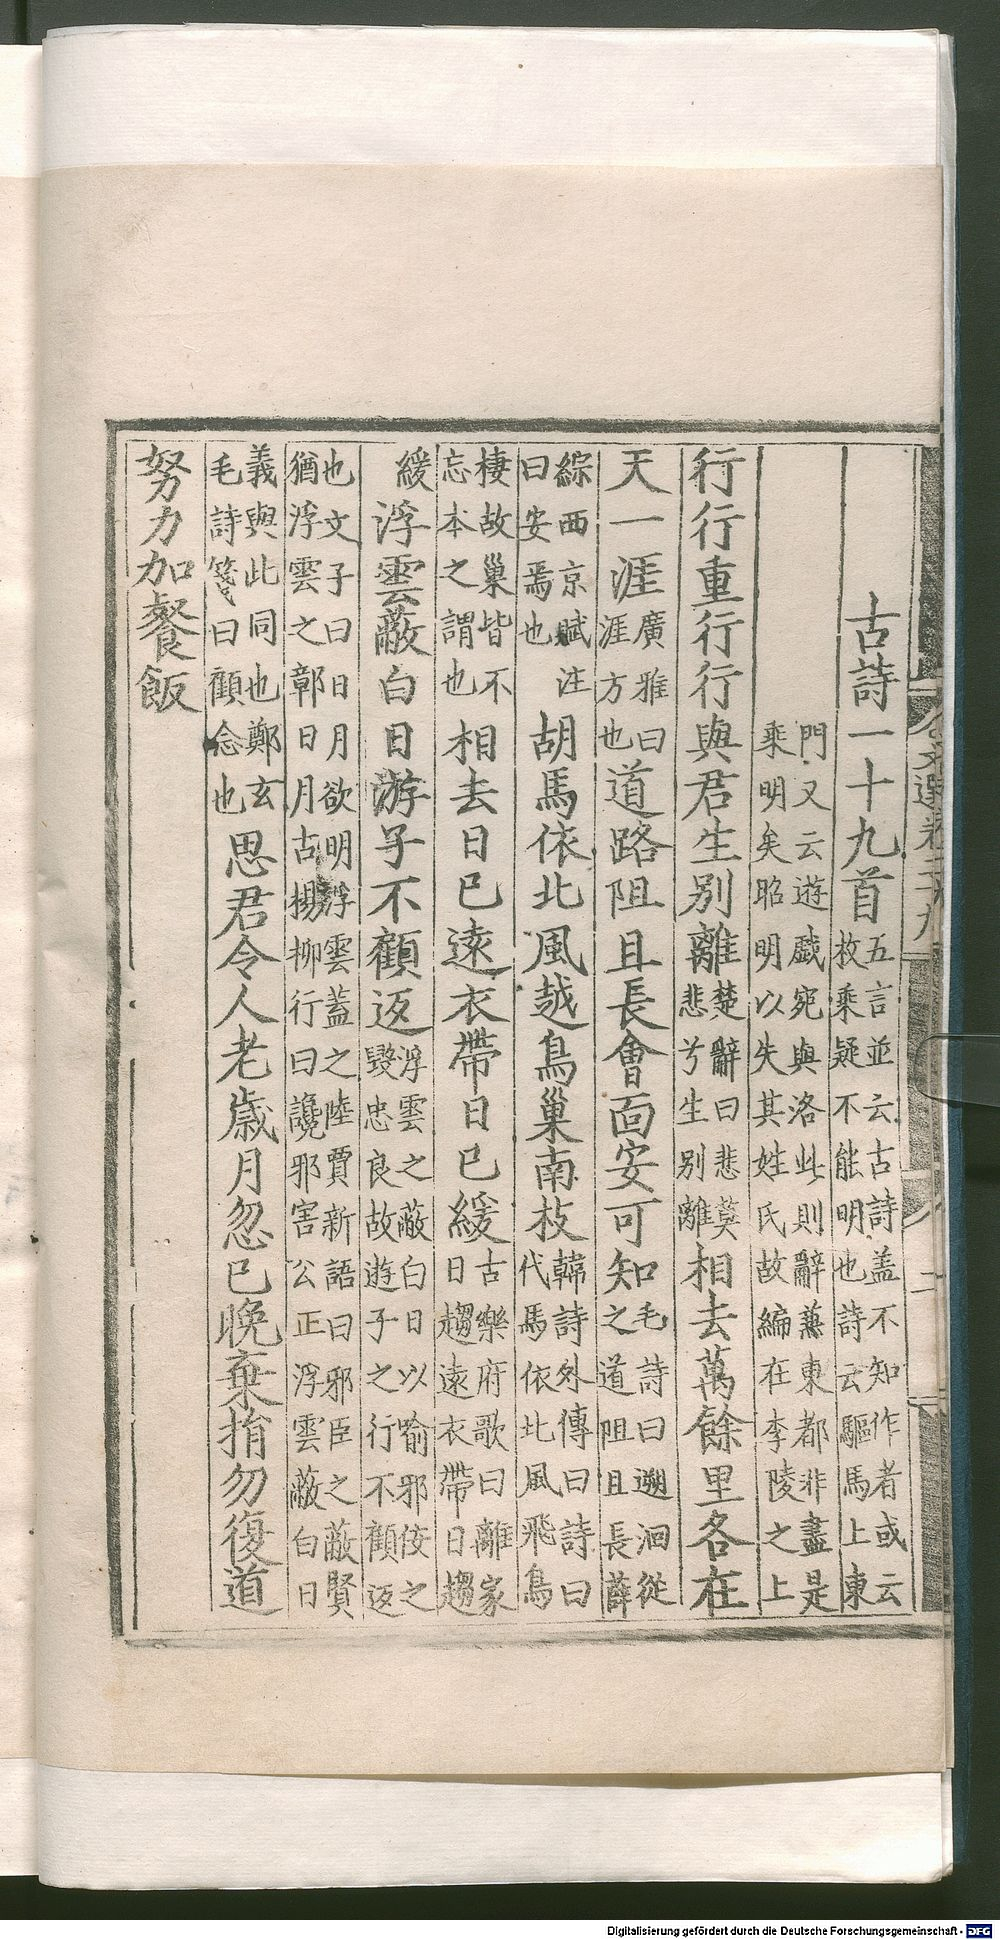 古詩一十九首五言並云古詩盖不知作者或云枚乘疑不能明也詩云驅馬上東
門又云遊戲宛與洛此則辭兼東都非盡是乘明矣昭明以失其姓氏故編在李陵之上
行行重行行與君生別離楚辭曰悲莫悲兮生別離相去萬餘里各在
天一涯廣雅曰涯方也道路阻且長會面安可知毛詩曰遡洄從之道阻且長薛
綜西京賦注曰安焉也胡馬依北風越鳥巢南枝韓詩外傳曰詩曰代馬依北風飛鳥
棲故巢皆不忘本之謂也相去日已遠衣帶日已緩古樂府歌曰離家日趨遠衣帶日趨
緩浮雲蔽白日游子不顧返浮雲之蔽白日以喻邪佞之毀忠良故遊子之行不顧返
也文子曰日月欲明浮雲蓋之陸賈新語曰邪臣之蔽賢猶浮雲之鄣日月古楊柳行曰讒邪害公正浮雲蔽白日
義與此同也鄭玄毛詩箋曰顧念也思君令人老歲月忽已晚棄捐勿復道
努力加餐飯
文選卷二十九
二
Digitalisierung gefördert durch die Deutsche Forschungsgemeinschaft - DFG